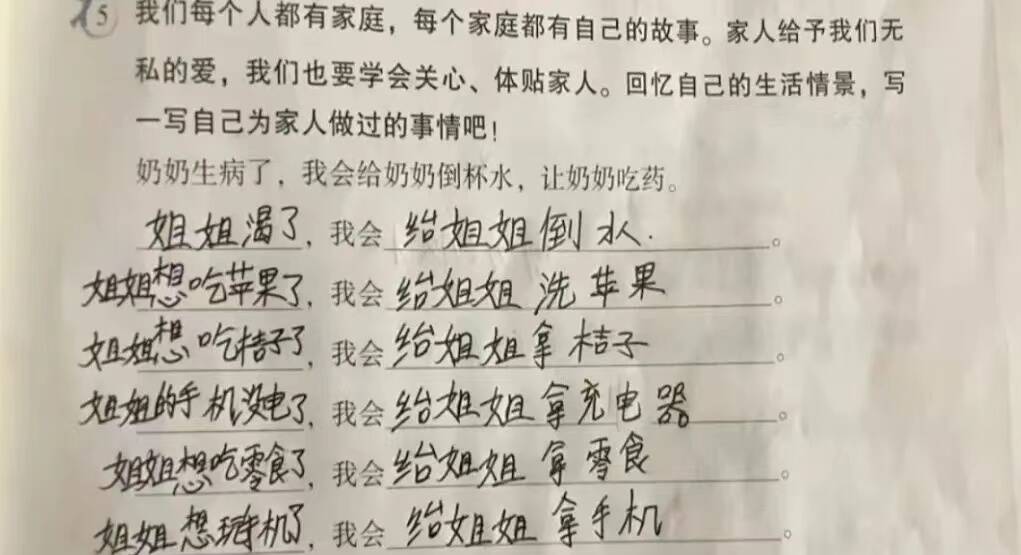 5 我们每个人都有家庭，每个家庭都有自己的故事。家人给予我们无
私的爱，我们也要学会关心、体贴家人。回忆自己的生活情景，写
一写自己为家人做过的事情吧！
奶奶生病了，我会给奶奶倒杯水，让奶奶吃药。
姐姐渴了，我会给姐姐倒水.。
姐姐想吃苹果了，我会给姐姐洗苹果。
姐姐想吃桔子了，我会给姐姐拿桔子。
姐姐的手机没电了，我会给姐姐拿充电器。
姐姐想吃零食了，我会给姐姐拿零食。
姐姐想玩手机了，我会给姐姐拿手机。